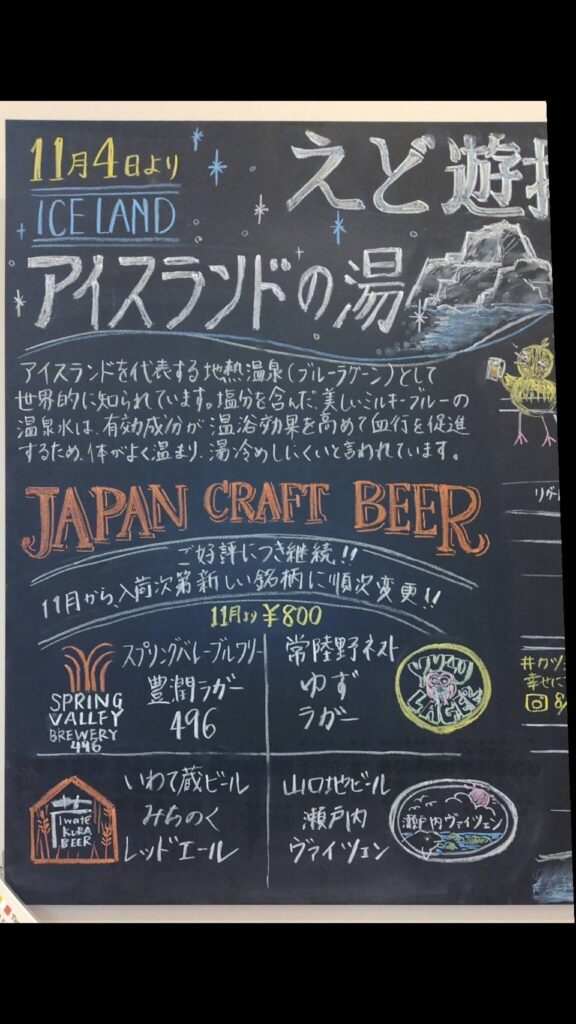 11月4日より
ICELAND
えど遊
アイスランドの湯
アイスランドを代表する地熱温泉(ブルーラグーン)として
世界的に知られています。塩分を含んだ美しいミルキーブルーの
温泉水は、有効成分が温浴効果を高めて血行を促進
するため、体がよく温まり、湯冷めしにくいと言われています。
JAPAN CRAFT BEER
ご好評につき継続!!
11月から、入荷次第新しい銘柄に順次変更!!
11月より ¥800
SPRING
VALLEY
BREWERY
496
スプリングバレーブルワリー
豊潤ラガー
496
常陸野ネスト
ゆず
ラガー
YUZU
LAGER
Iwate
KURA
BEER
いわて蔵ビール
みちのく
レッドエール
山口地ビール
瀬戸内
ヴァイツェン
瀬戸内ヴァイツェン
#カツ
幸せに